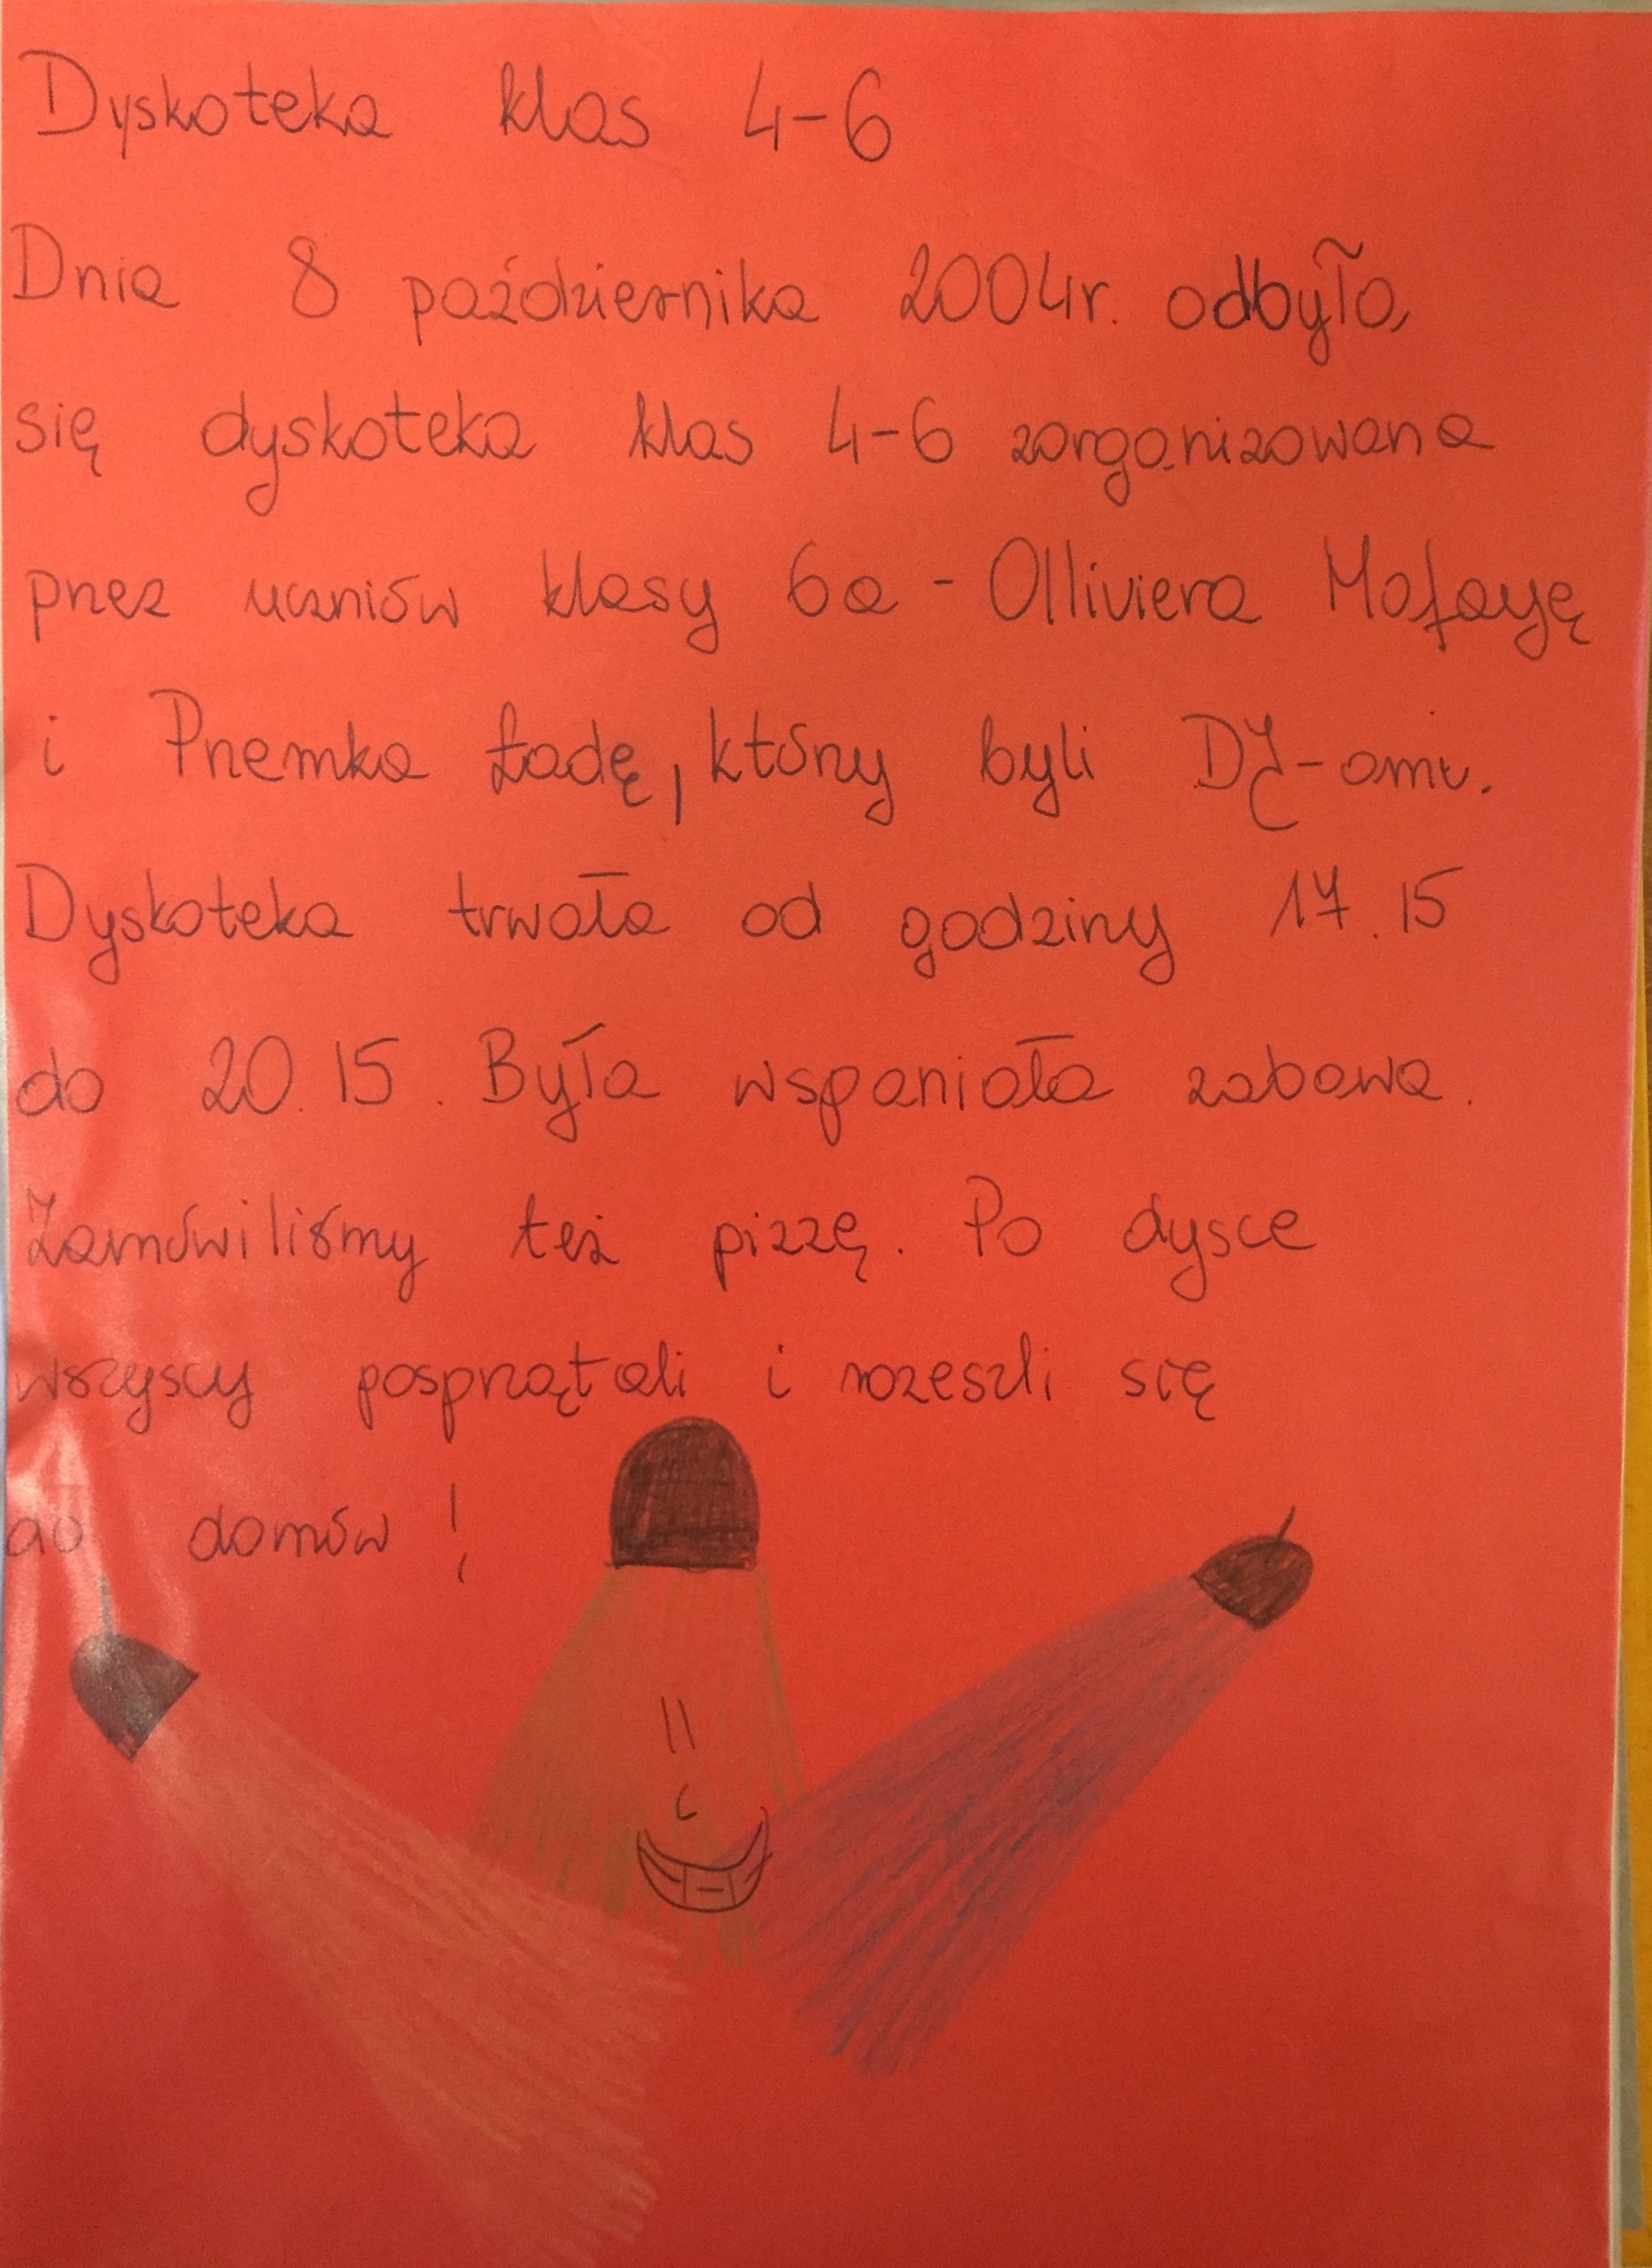 Dyskoteka klas 4-6
Dnia 8 października 2004r. odbyła
się dyskoteka klas 4-6 zorganizowana
przez uczniów klasy 6a - Olliviera Mofayę
i Przemka Ładę, którzy byli DJ-ami.
Dyskoteka trwała od godziny 17.15
do 20.15. Była wspaniała zabawa.
Zamówiliśmy też pizzę. Po dysce
wszyscy posprzątali i rozeszli się
do domów!